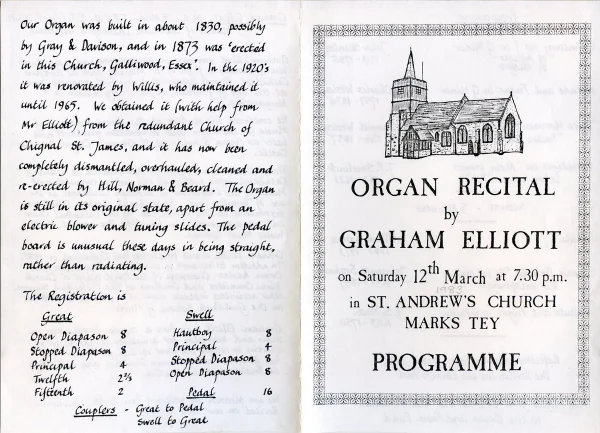 Our Organ was built in about 1830, possibly
by Gray & Davison, and in 1873 was 'erected
in this Church, Galliwood, Essex'. In the 1920's
it was renovated by Willis, who maintained it
until 1965. We obtained it (with help from
Mr Elliott) from the redundant Church of
Chignal St. James, and it has now been
completely dismantled, overhauled, cleaned and
re-erected by Hill, Norman & Beard. The Organ
is still in its original state, apart from an
electric blower and tuning slides. The pedal
board is unusual these days in being straight,
rather than radiating.
The Registration is
Great
Open Diapason 8
Stopped Diapason 8
Principal 4
Twelfth 2⅔
Fifteenth 2
Swell
Hautboy 8
Principal 4
Stopped Diapason 8
Open Diapason 8
Pedal 16
Couplers - Great to Pedal
Swell to Great
ORGAN RECITAL
by
GRAHAM ELLIOTT
on Saturday 12th March at 7.30 p.m.
1983
in ST. ANDREW'S CHURCH
MARKS TEY
PROGRAMME